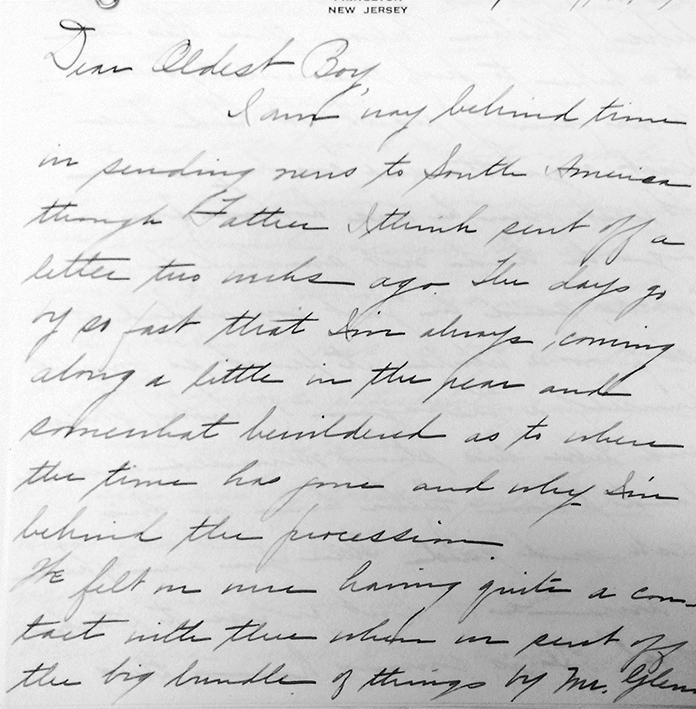 NEW JERSEY
Dear Oldest Boy,
I am way behind time
in sending news to South America
through Father I think sent off a
letter two weeks ago. The days go
by so fast that I'm always, coming
along a little in the rear and
somewhat bewildered as to where
the time has gone and why I'm
behind the procession.
We felt we were having quite a con-
tact with thee when we sent off
the big bundle of things by Mr. Glenn